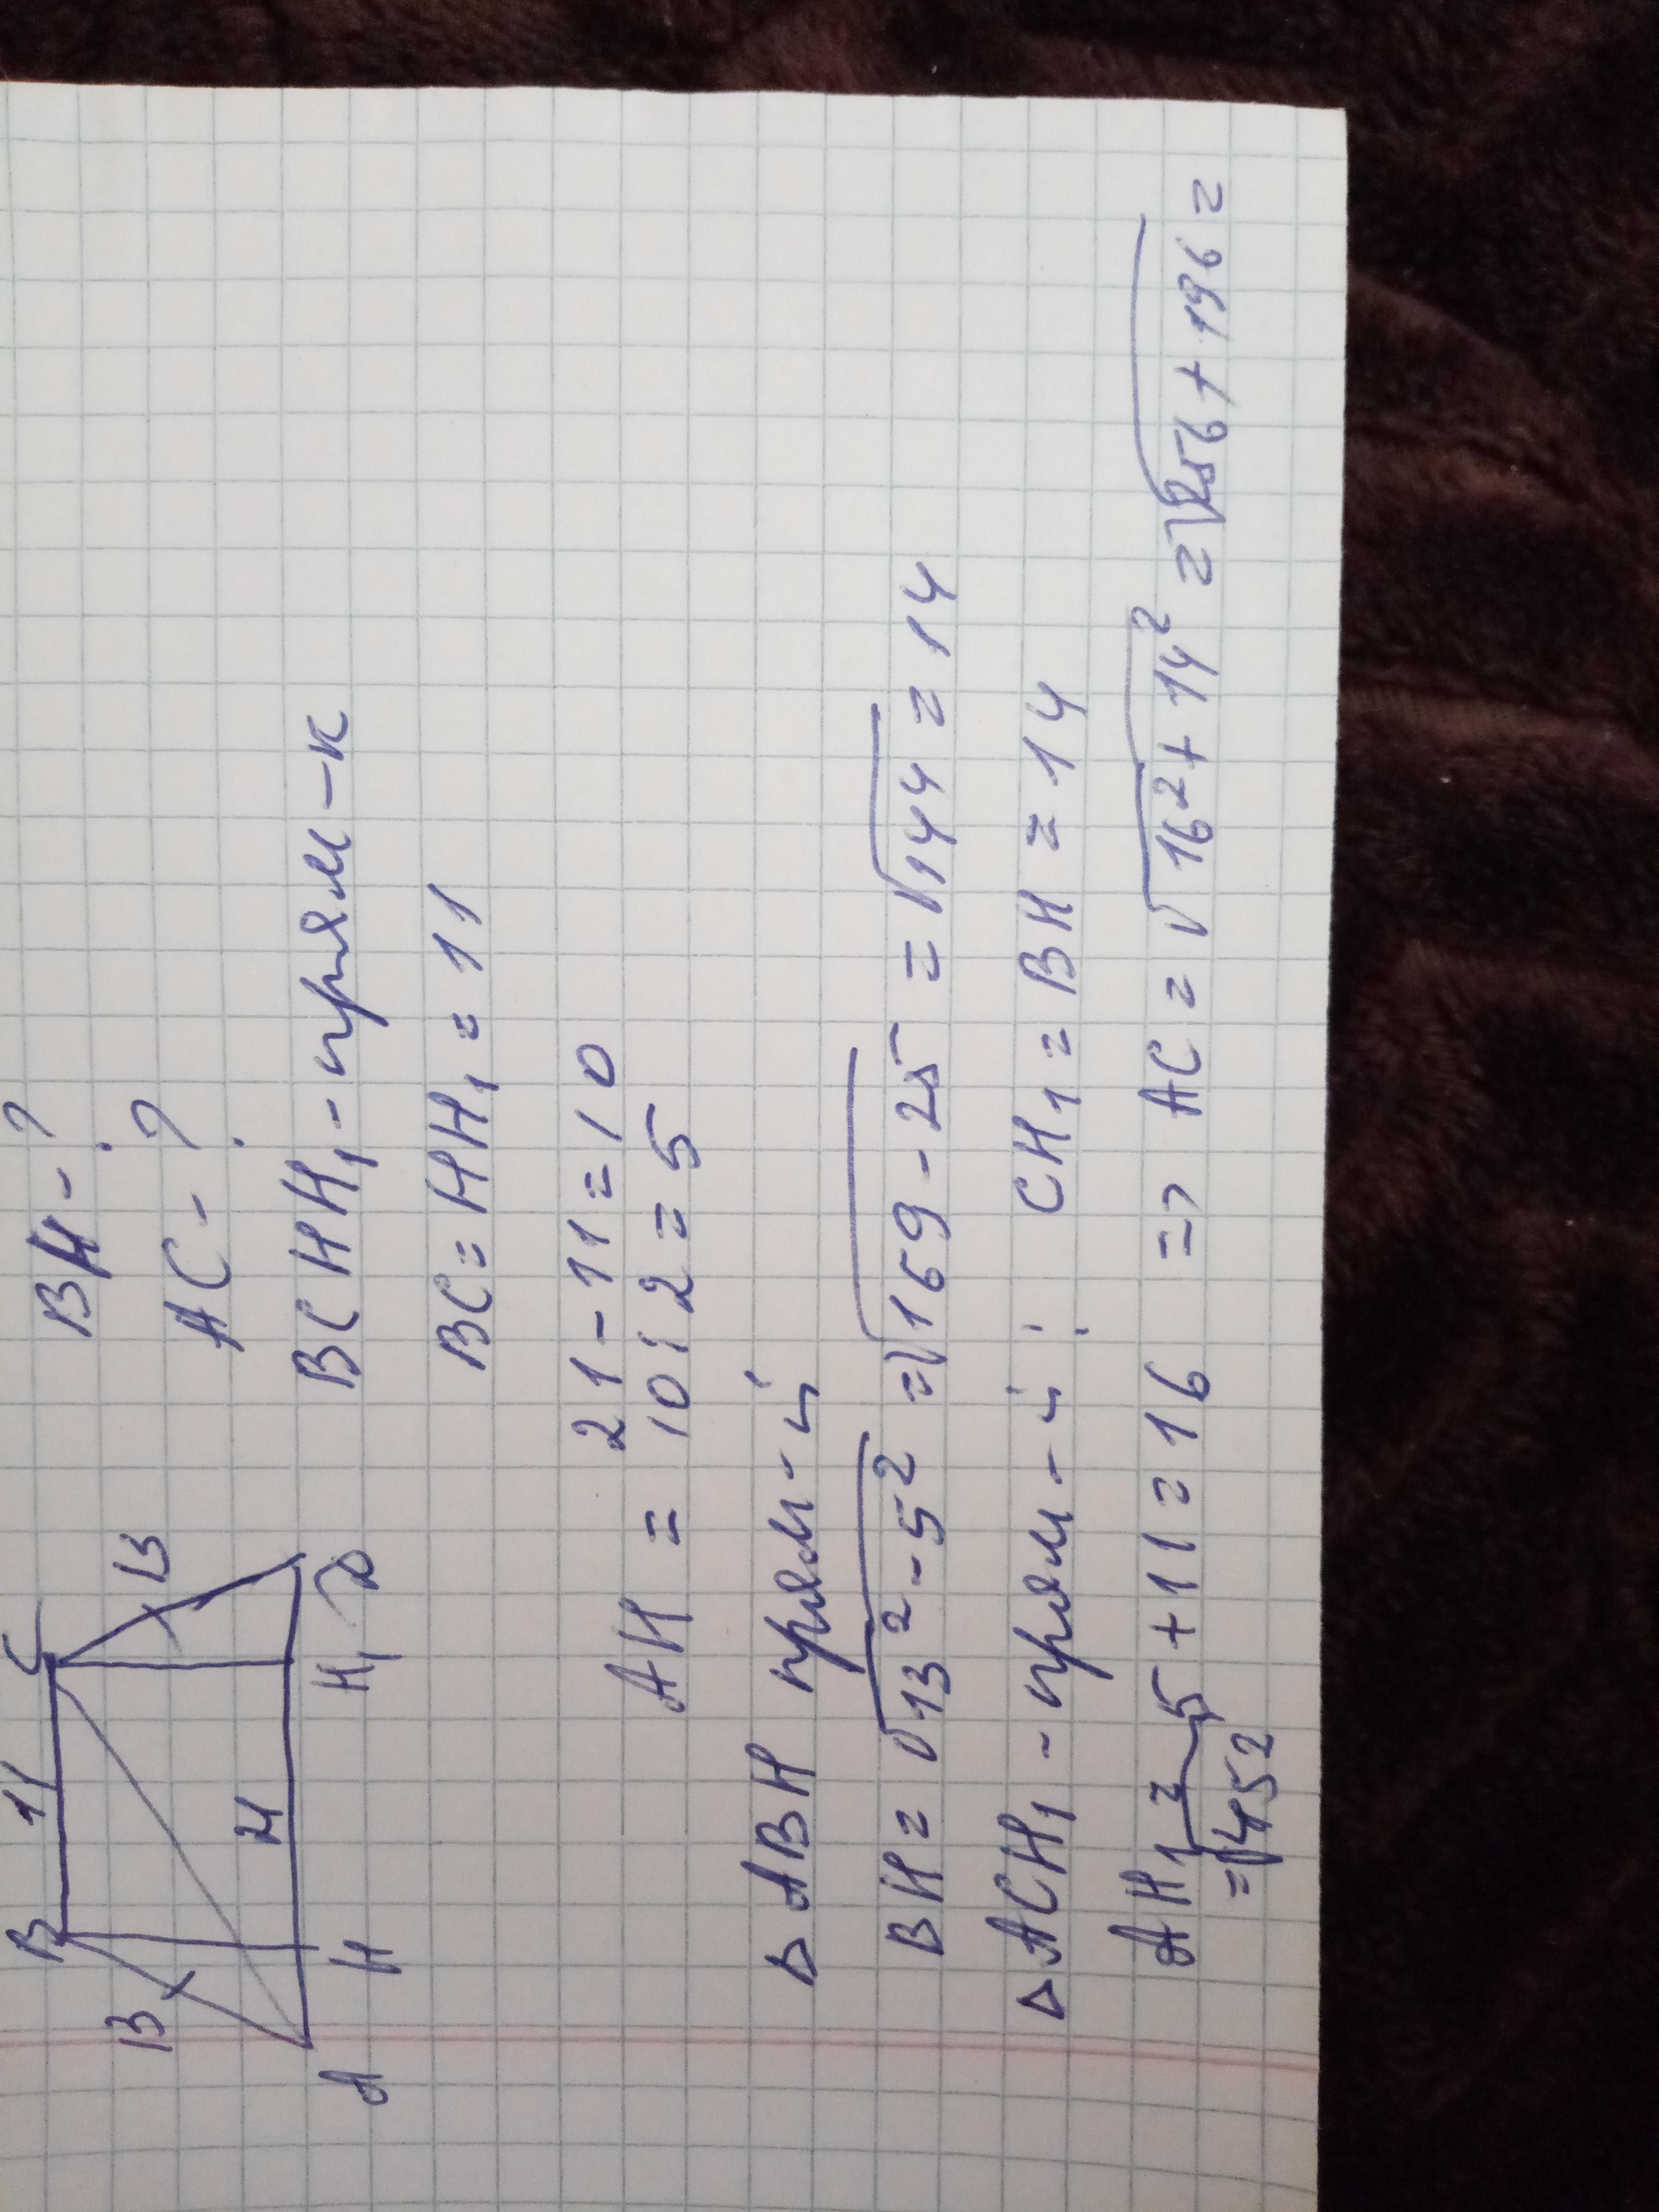 B 11 C
13 13
21
A H H₁ D
BH - ?
AC - ?
BCHH₁ - прям-к
BC = HH₁ = 11
21 - 11 = 10
AH = 10 : 2 = 5
△ABH прям-й
BH = √13² - 5² = √169 - 25 = √144 = 14
△ACH₁ - прям-й: CH₁ = BH = 14
AH₁ = 5 + 11 = 16 => AC = √16² + 14² = √256 + 196 =
= √452